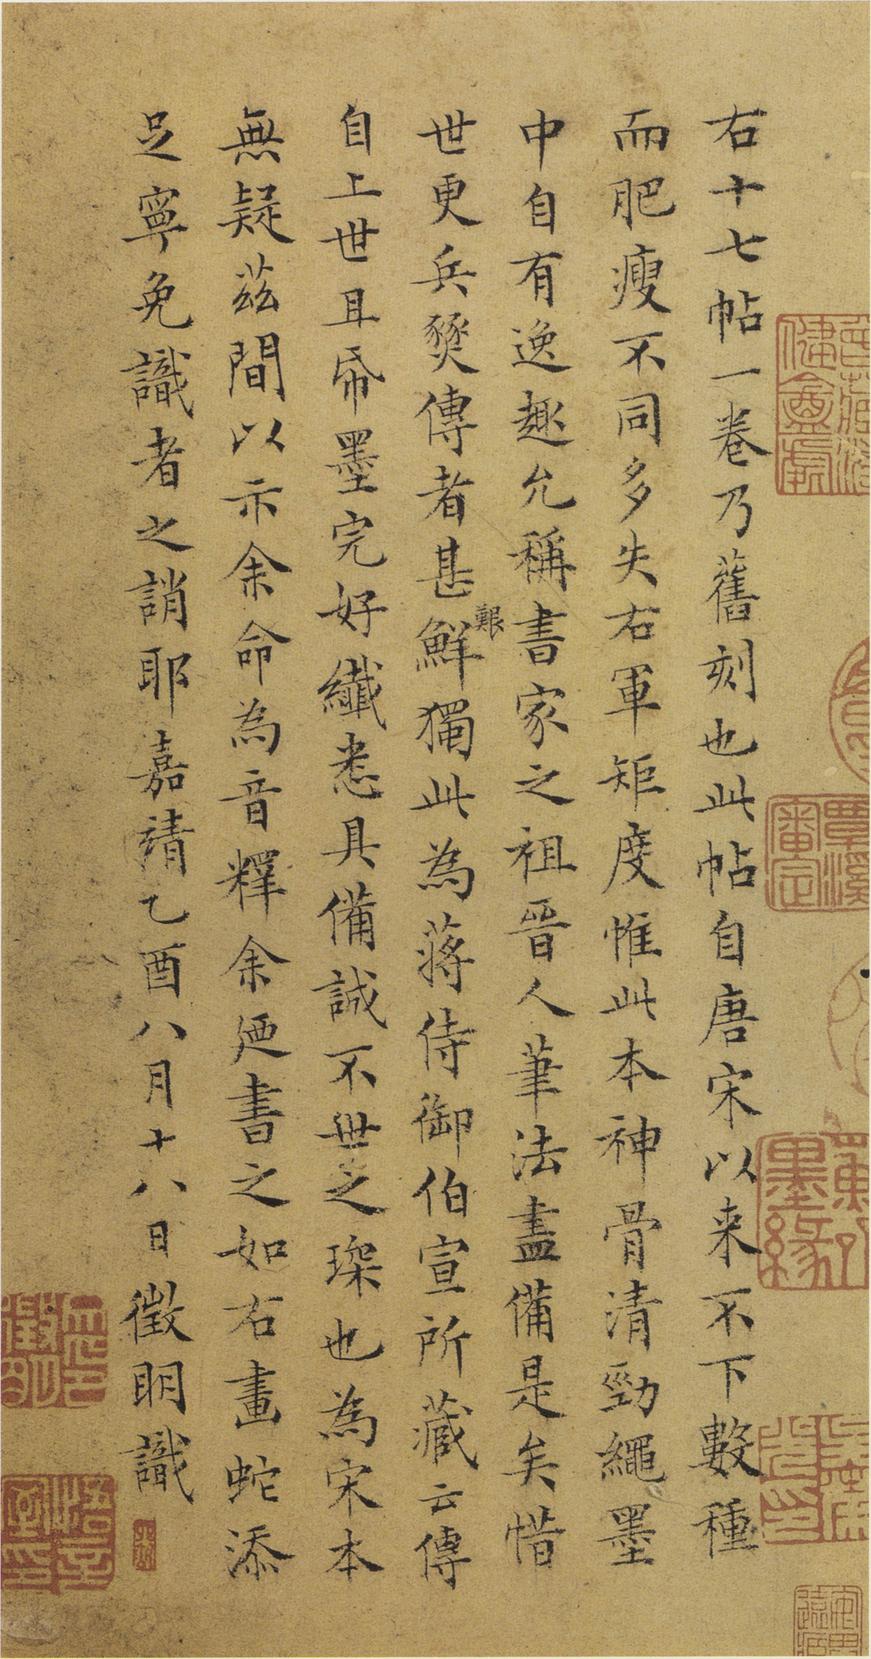 右十七帖一卷乃舊刻也此帖自唐宋以来不下數種
而肥瘦不同多失右軍矩度惟此本神骨清勁繩墨
中自有逸趣允稱書家之祖晉人筆法盡備是矣惜
世更兵燹傳者甚鮮獨此為蔣侍御伯宣所藏云傳
艱
自上世且帋墨完好纖悉具備誠不世之琛也為宋本
無疑茲間以示余命為音釋余廼書之如右畫蛇添
足寧免識者之誚耶嘉靖乙酉八月十八日徵明識
覃溪審定
墨緣
徵明